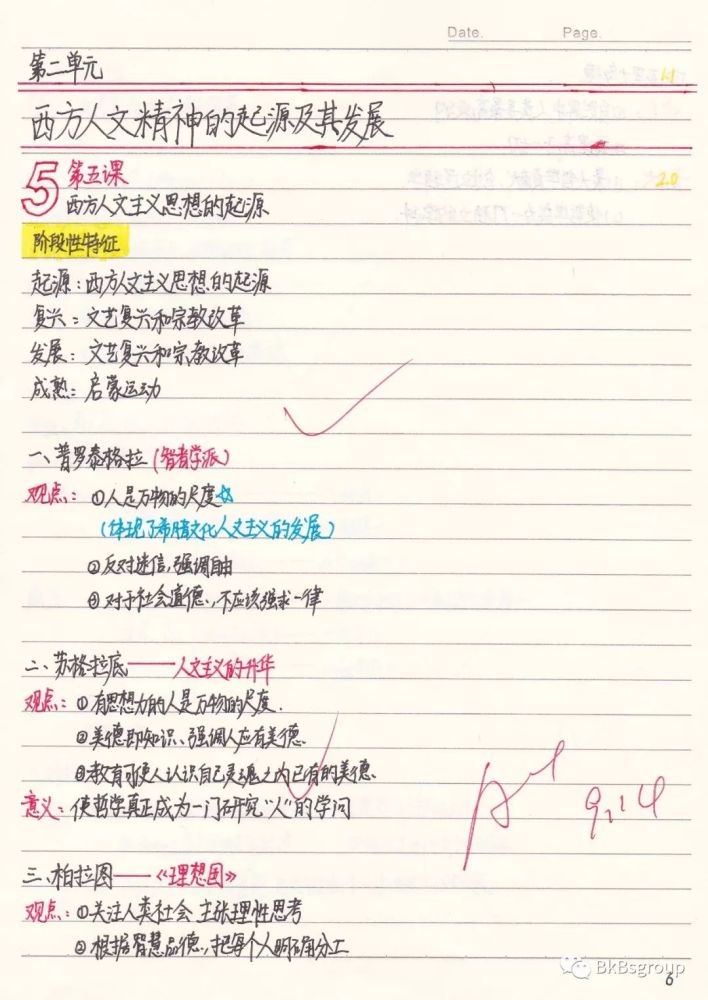 Date. Page.
第二单元
西方人文精神的起源及其发展
5 第五课
西方人文主义思想的起源
阶段性特征
起源:西方人文主义思想的起源
复兴:文艺复兴和宗教改革
发展:文艺复兴和宗教改革
成熟:启蒙运动
一、普罗泰格拉(智者学派)
观点:①人是万物的尺度☆
(体现了希腊文化人文主义的发展)
②反对迷信,强调自由
③对于社会道德,不应该强求一律
二、苏格拉底——人文主义的升华
观点:①有思想力的人是万物的尺度.
②美德即知识、强调人应有美德.
③教育可使人认识自己灵魂之内已有的美德.
意义:使哲学真正成为一门研究“人”的学问
9.14
三、柏拉图——《理想国》
观点:①关注人类社会 主张理性思考
②根据智慧品德,把每个人明确分工
BkBsgroup
6